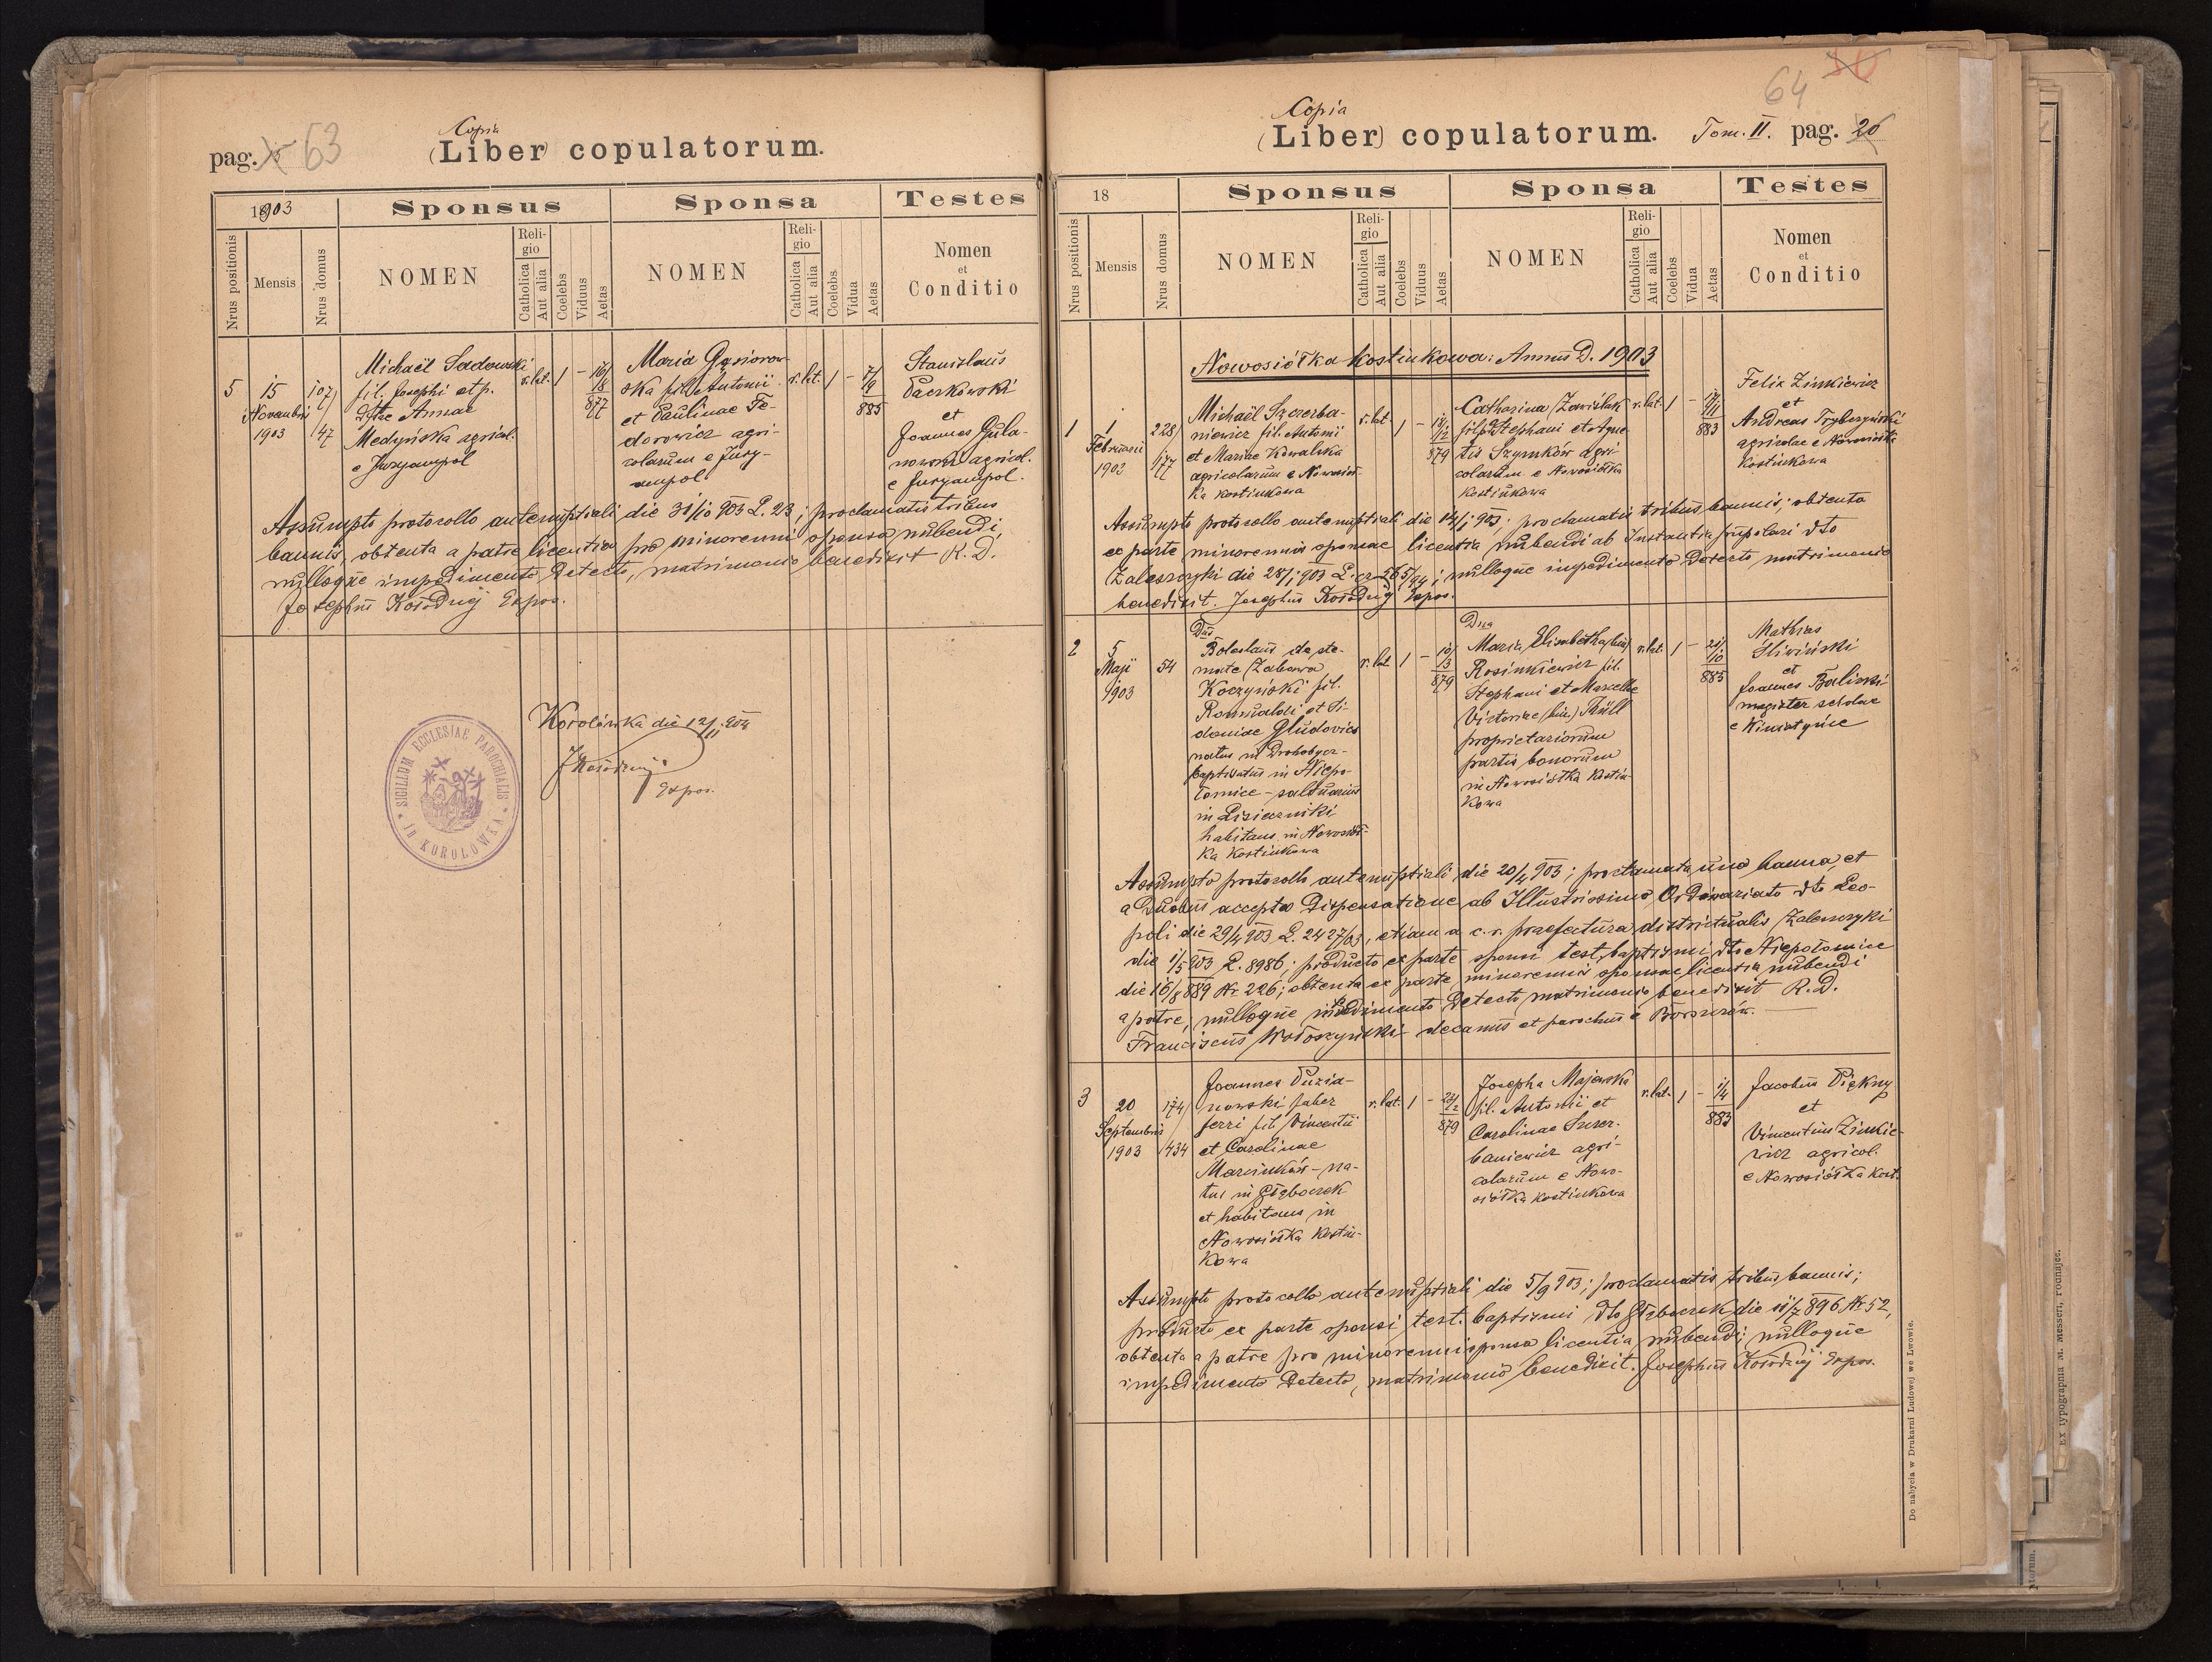 pag. 63
Copia
(Liber) copulatorum.
1903
Sponsus
Sponsa
Testes
Nrus positionis
Mensis
Nrus domus
NOMEN
Religio
Catholica
Aut alia
Coelebs
Viduus
Aetas
NOMEN
Religio
Catholica
Aut alia
Coelebs
Vidua
Aetas
Nomen
et
Conditio
5
15
Novembris
1903
107/
47
Michaël Sadowski
fil. Josephi et p.
dftae Annae
Medyńska agricol.
e Juryampol
r. lat.
1
-
16/
8
877
Maria Gąsiorow-
ska fil. Antonii
et Paulinae Fe-
dorowicz agri-
colarum e Jury-
ampol
r. lat.
1
-
7/
9
885
Stanislaus
Paczkowski
et
Joannes Gula-
nowski agricol.
e Juryampol.
Assumpto protocollo antenuptiali die 31/10 903 L. 23; proclamatis tribus
bannis, obtenta a patre licentia pro minorenni sponsa nubendi,
nulloque impedimento detecto, matrimonio benedixit R. D.
Josephus Kołodziej Expos.
Korolówka die 12/II 904
JKołodziej
Expos.
SIGILLUM ECCLESIAE PAROCHIALIS
in KOROLÓWKA
64
Copia
(Liber) copulatorum. Tom. II. pag. 26
18
Sponsus
Sponsa
Testes
Nrus positionis
Mensis
Nrus domus
NOMEN
Religio
Catholica
Aut alia
Coelebs
Viduus
Aetas
NOMEN
Religio
Catholica
Aut alia
Coelebs
Vidua
Aetas
Nomen
et
Conditio
Nowosiółka kostiukowa: Annus D. 1903
1
1
Februarii
1903
228/
177
Michaël Szczerba-
niewicz fil. Antonii
et Mariae Kowalska
agricolarum e Nowosiół-
ka kostiukowa
r. lat.
1
-
879
Catharina Zawiślak
fil. Stephani et Agne-
tis Szymków agri-
colarum e Nowosiółka
Kostiukowa
r. lat.
1
-
883
Felix Zinkiewicz
et
Andreas Trybczyński
agricolae e Nowosiółka
Kostiukowa
Assumpto protocollo antenuptiali die 14/1 903; proclamatis tribus bannis; obtenta
ex parte minorennis sponsae licentia nubendi ab Instantia pupilari dto
Zaleszczyki die 28/1 903 L. cz 565/94; nulloque impedimento detecto matrimonio
benedixit. Josephus Kołodziej Expos.
2
5
Maji
1903
54
Dnus
Boleslaus de ste-
mate Zabawa
Koczyński fil.
Romualdi et Si-
doniae Gludovics
natus in Drohobycz-
baptisatus in Niepo-
łomice - saltuarius
in Lisieczniki
habitans in Nowosiół-
ka Kostiukowa
r. lat.
1
-
10/
3
879
Dna
Maria Elisabetha (bin)
Rosinkiewicz fil.
Stephani et Marcellae
Victoriae (bin.) Krüll
proprietariorum
partis bonorum
in Nowosiółka kostiu-
kowa
r. lat.
1
-
21/
10
885
Mathias
Śliwiński
et
Joannes Baliński
magister scholae
e Winiatyńce
Assumpto protocollo antenuptiali die 20/4 903; proclamata una banna, et
a duobus accepta dispensatione ab Illustrissimo Ordinariato dto Leo-
poli die 29/4 903 L. 2427/03, etiam a c. r. praefectura districtualis Zaleszczyki
die 1/5 903 L. 8986; producto ex parte sponsi test. baptismi dto Niepołomice
die 16/8 889 Nr 226; obtenta ex parte minorennis sponsae licentia nubendi
a patre, nulloque impedimento detecto, matrimonio benedixit R. D.
Franciscus Wołoszyński decanus et parochus e Borszczów.
3
20
Septembris
1903
174/
434
Joannes Puzia-
nowski faber
ferri fil. Vincentii
et Carolinae
Marcinków - na-
tus in Głęboczek
et habitans in
Nowosiółka Kostiu-
kowa
r. lat.
1
-
879
Josepha Majewska
fil. Antonii et
Carolinae Szczer-
baniewicz agri-
colarum e Nowo-
siółka kostiukowa
r. lat.
1
-
1/
4
883
Jacobus Piękny
et
Vincentius Zinkie-
wicz agricol.
e Nowosiółka kost.
Assumpto protocollo antenuptiali die 5/9 903; proclamatis tribus bannis;
producto ex parte sponsi test. baptismi dto Głęboczek die 11/7 896 Nr 52,
obtenta a patre pro minorenni sponsa licentia nubendi; nulloque
impedimento detecto, matrimonio benedixit. Josephus Kołodziej Expos.
Do nabycia w Drukarni Ludowej we Lwowie.
Ex typographia M. Messeri, rodnajec.